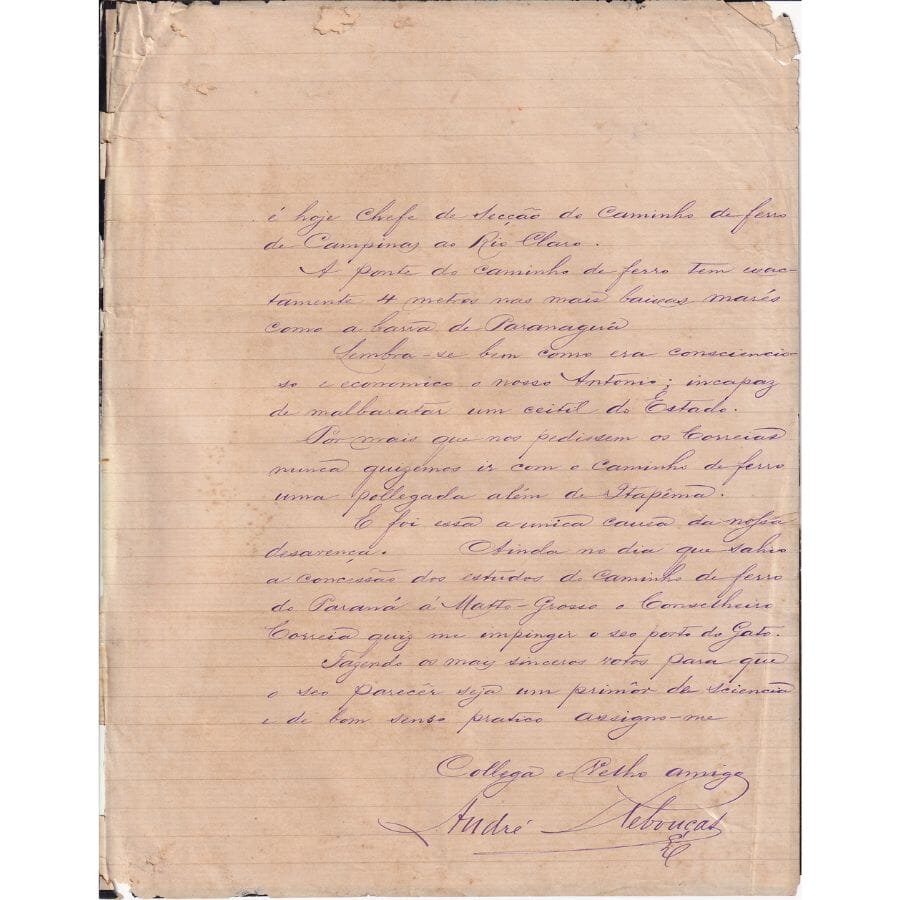 é hoje Chefe de Secção do caminho de ferro
de Campinas ao Rio Claro.
A ponte do caminho de ferro tem exac-
tamente 4 metros nas mais baixas marés
como a barra de Paranaguá
Lembra-se bem como era consciencio-
so e economico o nosso Antonio; incapaz
de malbaratar um ceitil do Estado.
Por mais que nos pedissem os Correias
nunca quizemos ir com o caminho de ferro
uma pollegada além de Itapêma.
E foi essa a unica causa da nossa
desavença. Ainda no dia que sahio
a concessão dos estudos do caminho de ferro
do Paraná á Matto-Grosso o Conselheiro
Correia quiz me impinger o seo porto do Gato.
Fazendo os mais sinceros votos para que
o seo parecêr seja um primôr de sciencia
e de bom senso pratico assigno-me
Collega e Velho amigo
André Rebouças